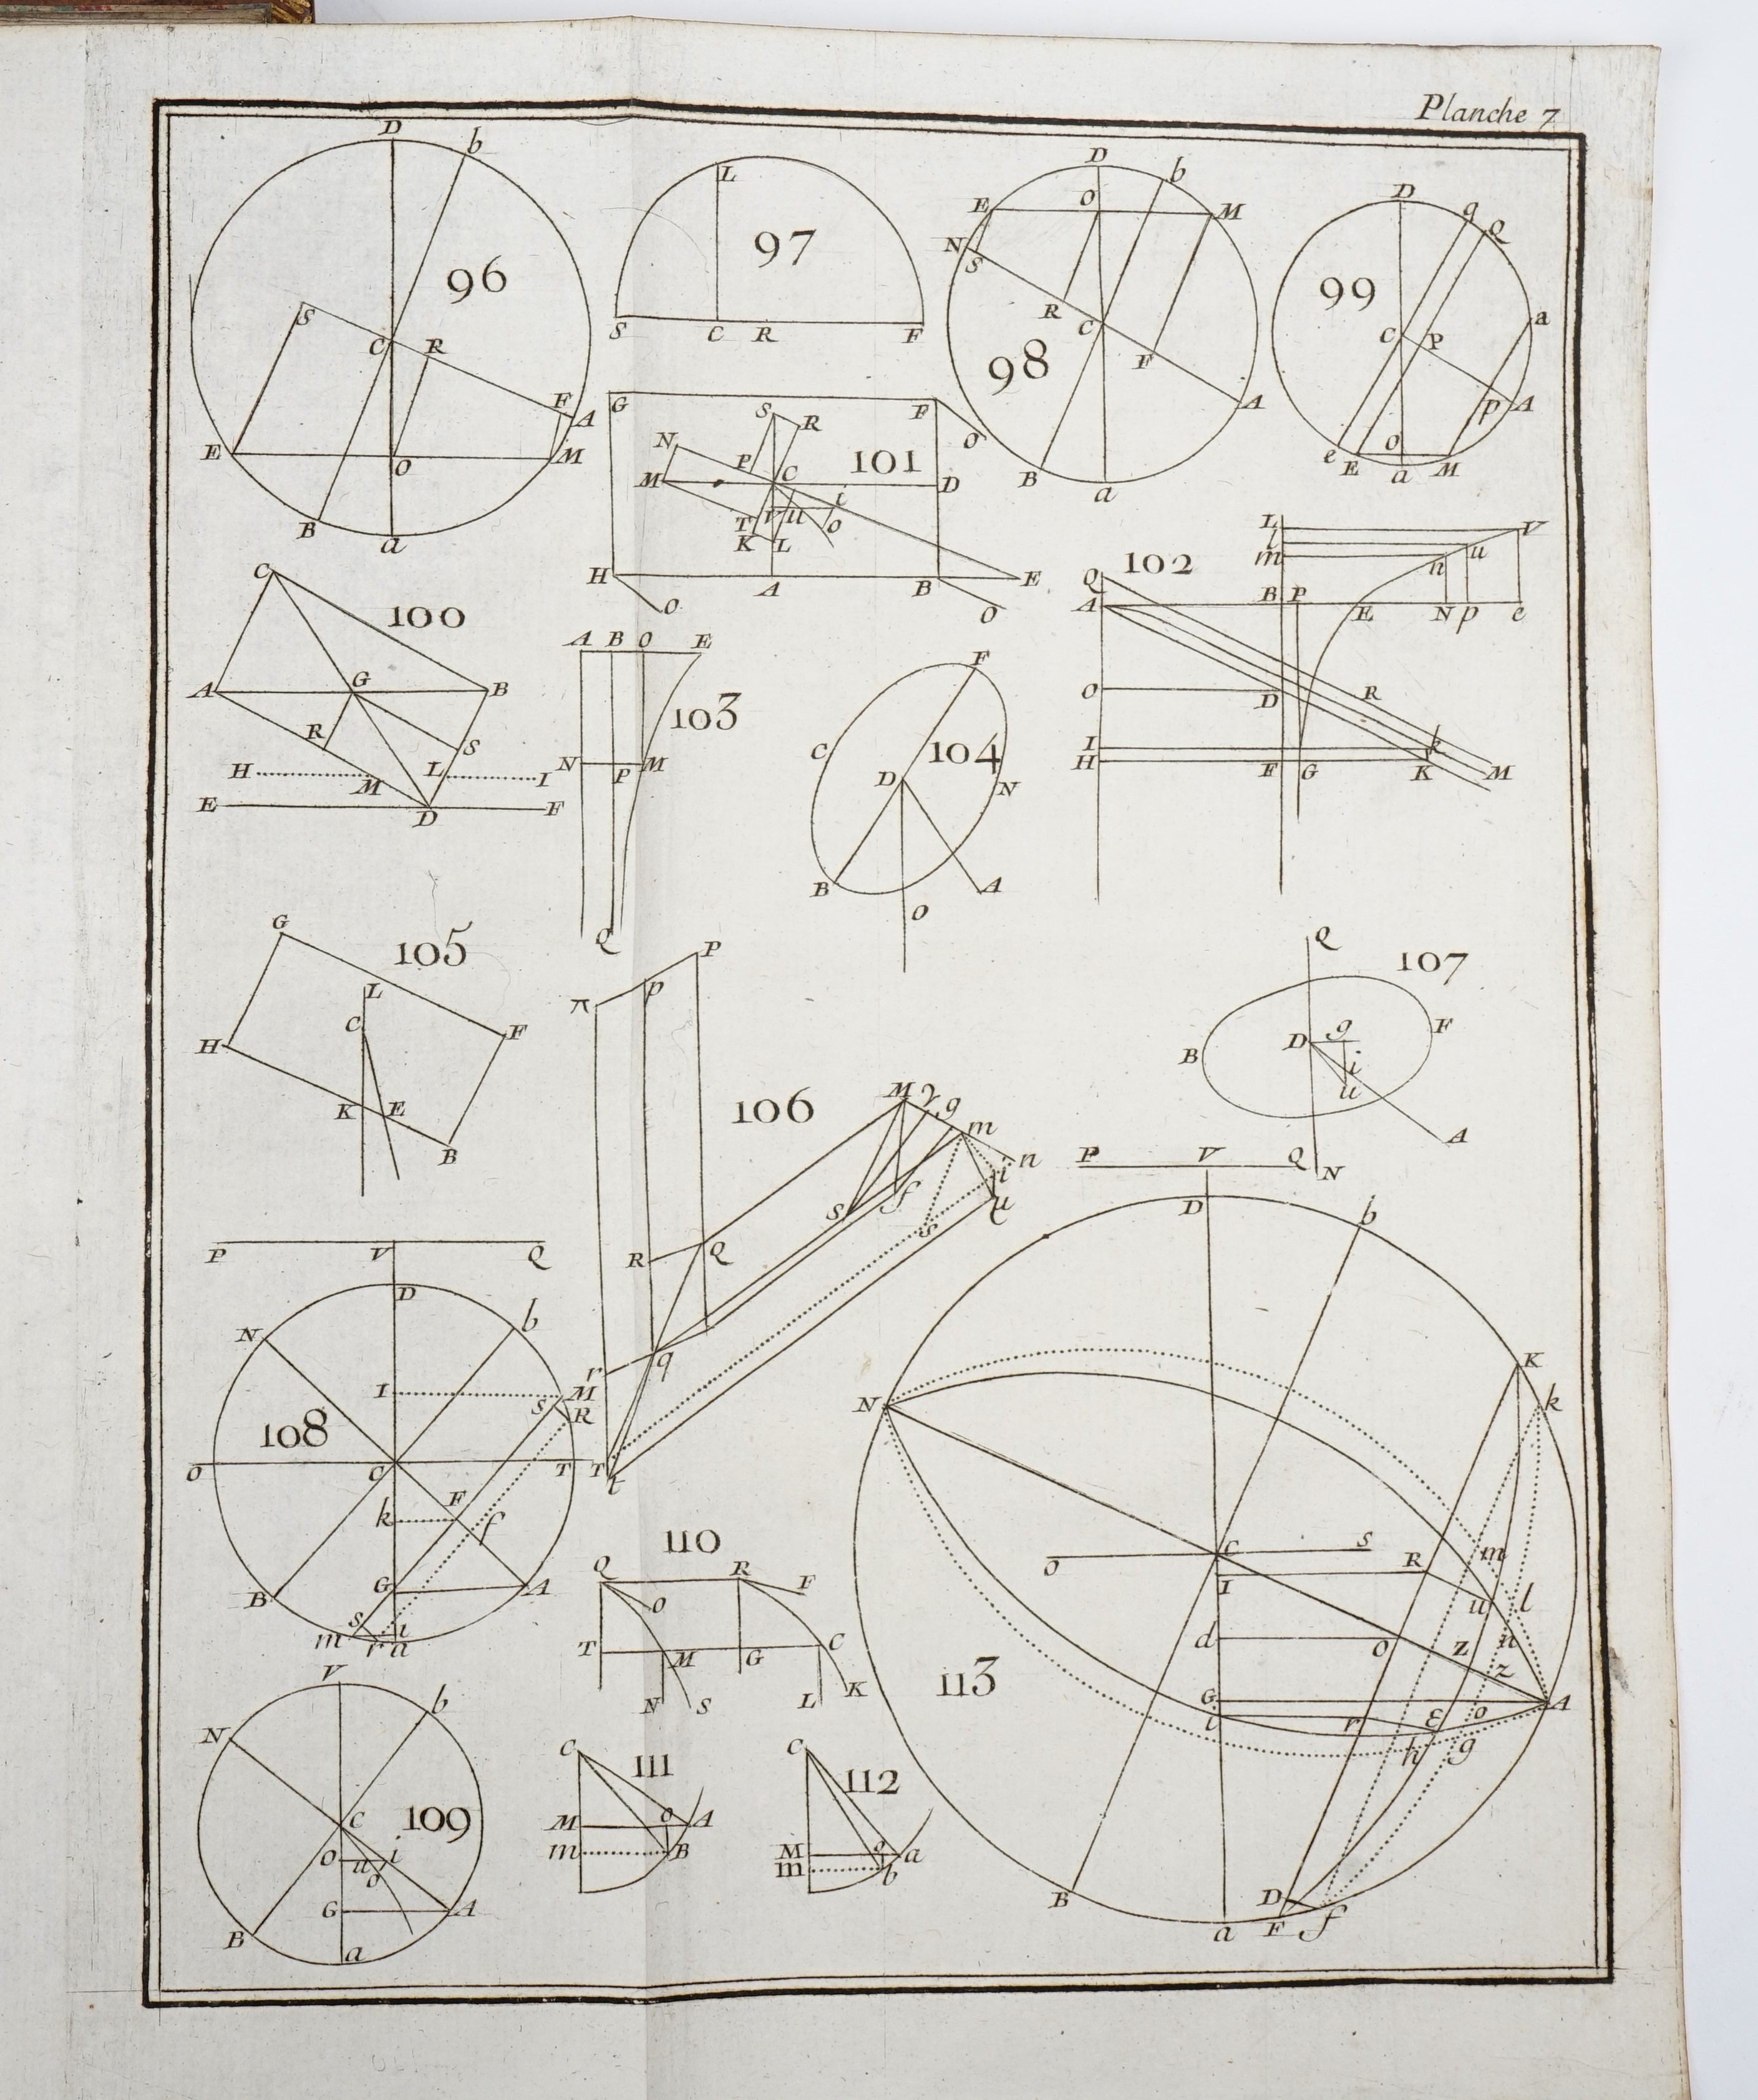 Planche 7
D b
96
S C R
F A
E O M
B a
L
97
S C R F
D b
E O M
N S
R C F
98
A
B a
D q Q
99
a
C P
p A
e E o a M
G S R F
N P C 101 O
M D
i
T V u o
K L
H A B E
O O
L V
l u
m n
102
Q
A B P E N p e
O D R
I k
H F G K M
C
100
A G B
R S
H M L I
E D F
A B O E
103
N P M
Q
F
C 104
D N
B A
O
G
105
L
C
H F
K E
B
P
π p
106
M γ g
m
i n
S f
s u
R Q
r q
T t
Q
107
g F
B D i
u
A
P V Q N
P V Q
D
N b
I M
S R
108
O C T
k F f
G A
B s i
m r a
110
Q R F
O
T M G C
N S L K
V b
N
C 109
O u i
o
G A
B a
C 111
M o A
m B
C 112
M o a
m b
D b
K
N k
C S
O R m
I u l
d O Z n
z
113
G o A
i r ε
h g
B D
a F f